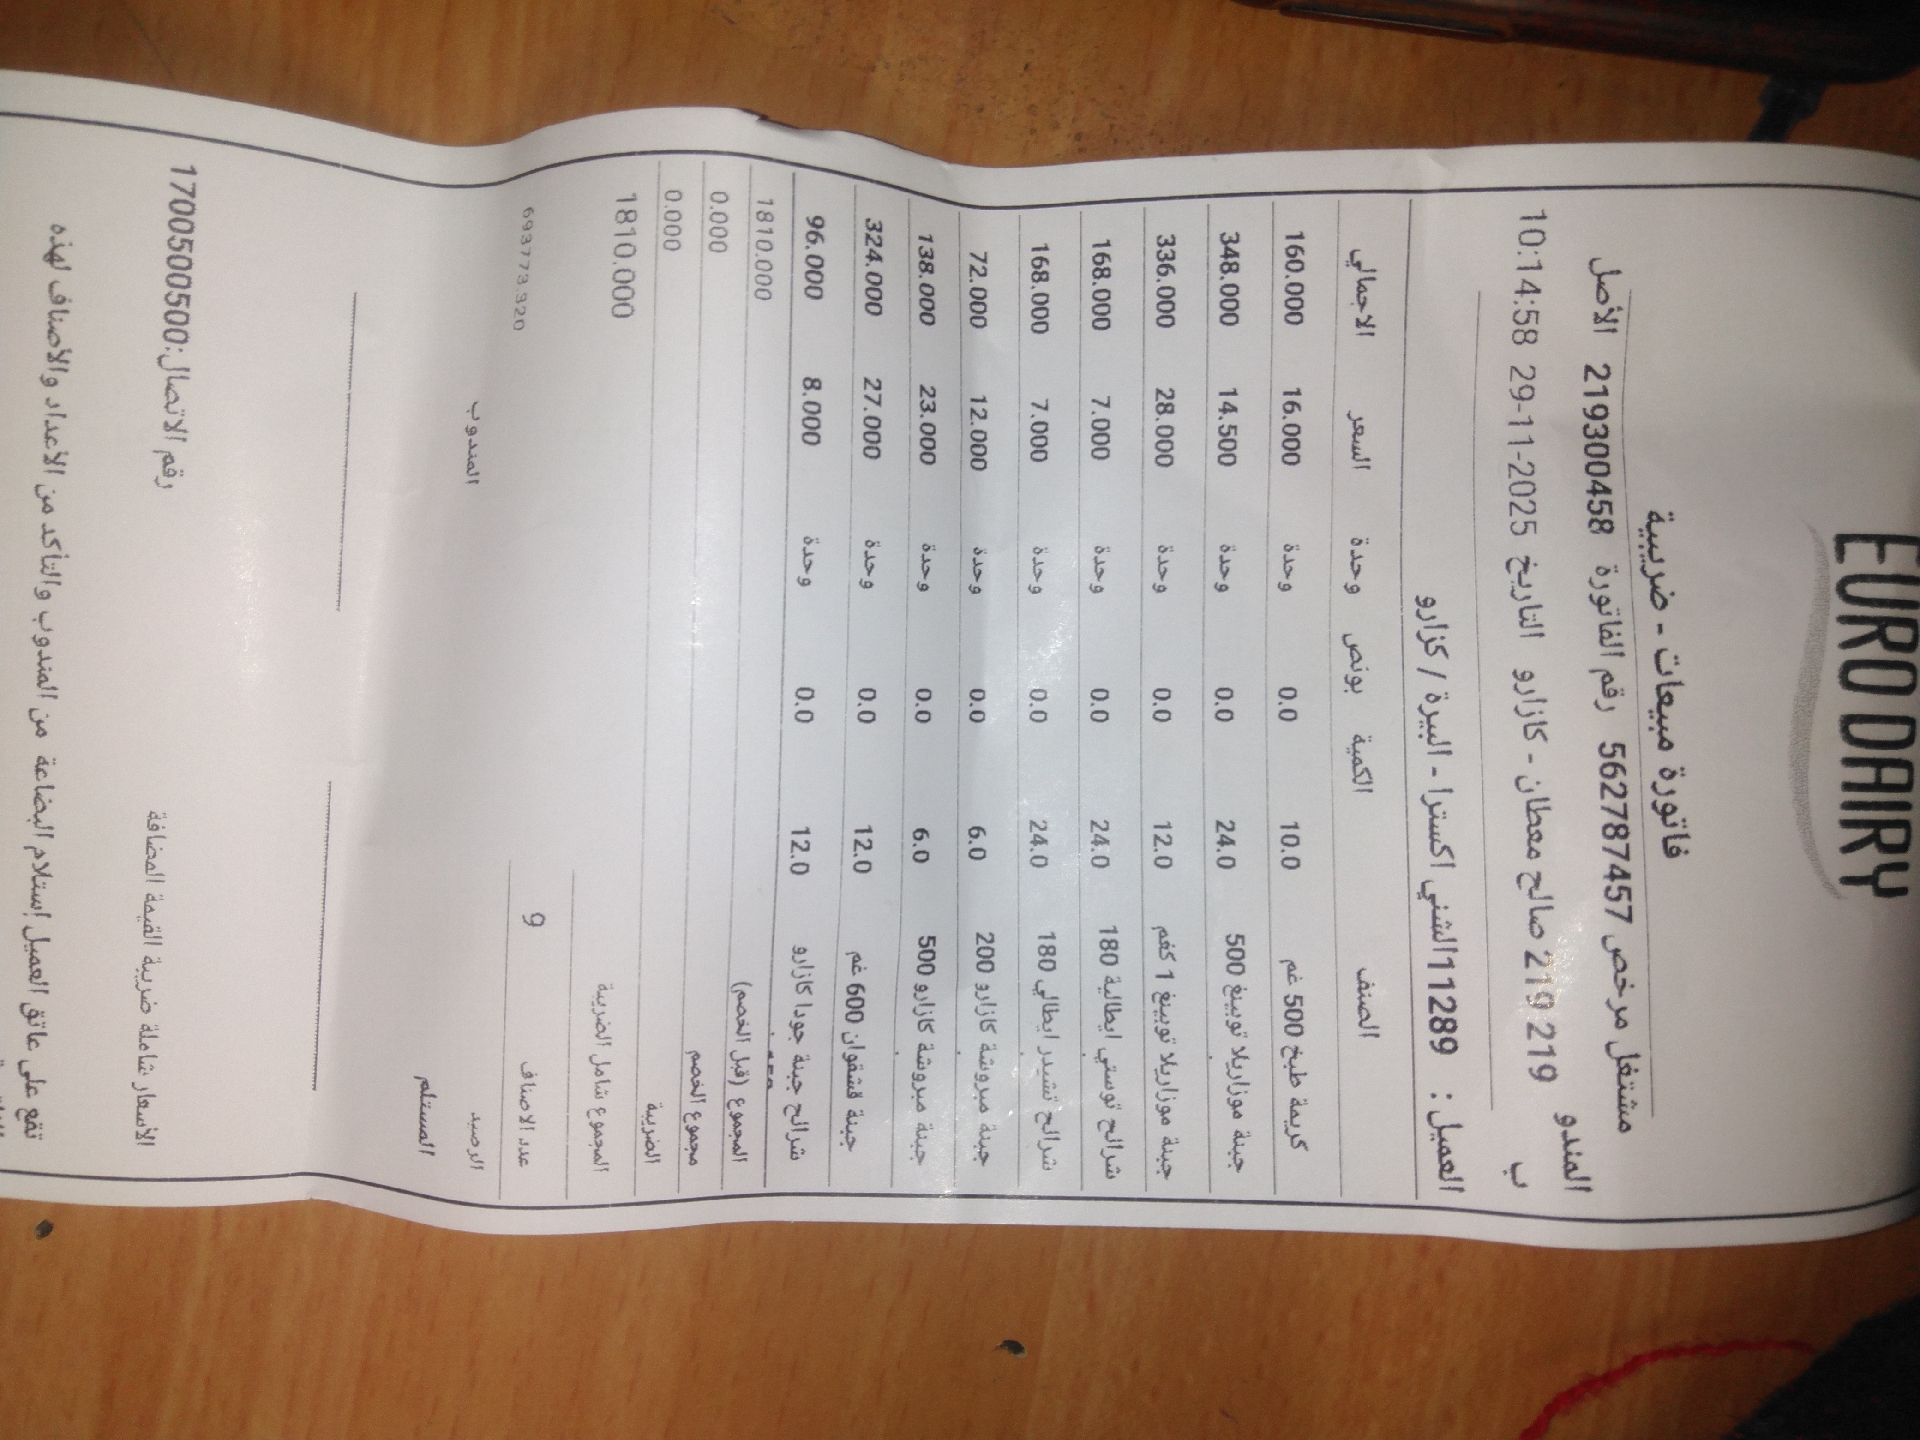 EURO DAIRY
فاتورة مبيعات - ضريبية
مشتغل مرخص 562787457 رقم الفاتورة 219300458 الأصل
المندوب 219 219 صالح معطان - كازارو التاريخ 2025-11-29 10:14:58
العميل : 11289الشني اكسترا - البيرة / كزارو
الصنف الكمية بونص وحدة السعر الاجمالي
كريمة طبخ 500 غم 10.0 0.0 وحدة 16.000 160.000
جبنة موزاريلا توبينغ 500 24.0 0.0 وحدة 14.500 348.000
جبنة موزاريلا توبينغ 1 كغم 12.0 0.0 وحدة 28.000 336.000
شرائح توستي ايطالية 180 24.0 0.0 وحدة 7.000 168.000
شرائح تشيدر ايطالي 180 24.0 0.0 وحدة 7.000 168.000
جبنة مبروشة كازارو 200 6.0 0.0 وحدة 12.000 72.000
جبنة مبروشة كازارو 500 6.0 0.0 وحدة 23.000 138.000
جبنة قشقوان 600 غم 12.0 0.0 وحدة 27.000 324.000
شرائح جبنة جودا كازارو 12.0 0.0 وحدة 8.000 96.000
المجموع (قبل الخصم) 1810.000
مجموع الخصم 0.000
الضريبة 0.000
المجموع شامل الضريبة 1810.000
عدد الاصناف 9
الرصيد 693773.920
المستلم المندوب
الأسعار شاملة ضريبة القيمة المضافة رقم الاتصال:1700500500
تقع على عاتق العميل إستلام البضاعة من المندوب والتأكد من الأعداد والأصناف لهذه